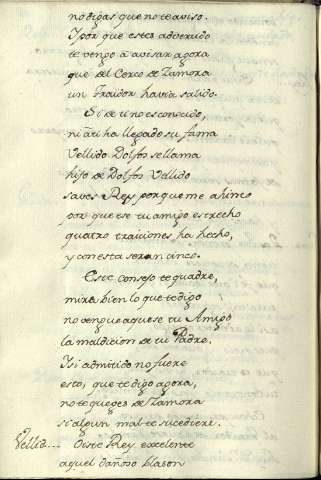 no digas que no te aviso.
Y por que estes advertido
te vengo â avisar agora
que del Cerco de Zamora
un Traidor havia salido.
Si de ti no es conocido,
ni â ti ha llegado su fama
Vellido Dolfos se llama
hijo de Dolfos Vellido
saves Rey porque me ahinco
por que ese tu amigo estrecho
quatro traiciones ha hecho,
y con esta seran cinco.
Este consejo te quadre,
mira bien lo que te digo
no vengue aquese tu Amigo
la maldicion de tu Padre.
Y si admitido no fuere
esto, que te digo agora,
no te quejes de Zamora
si algun mal te sucediere.
Vellid.... Oiste Rey excelente
aquel dañoso blason